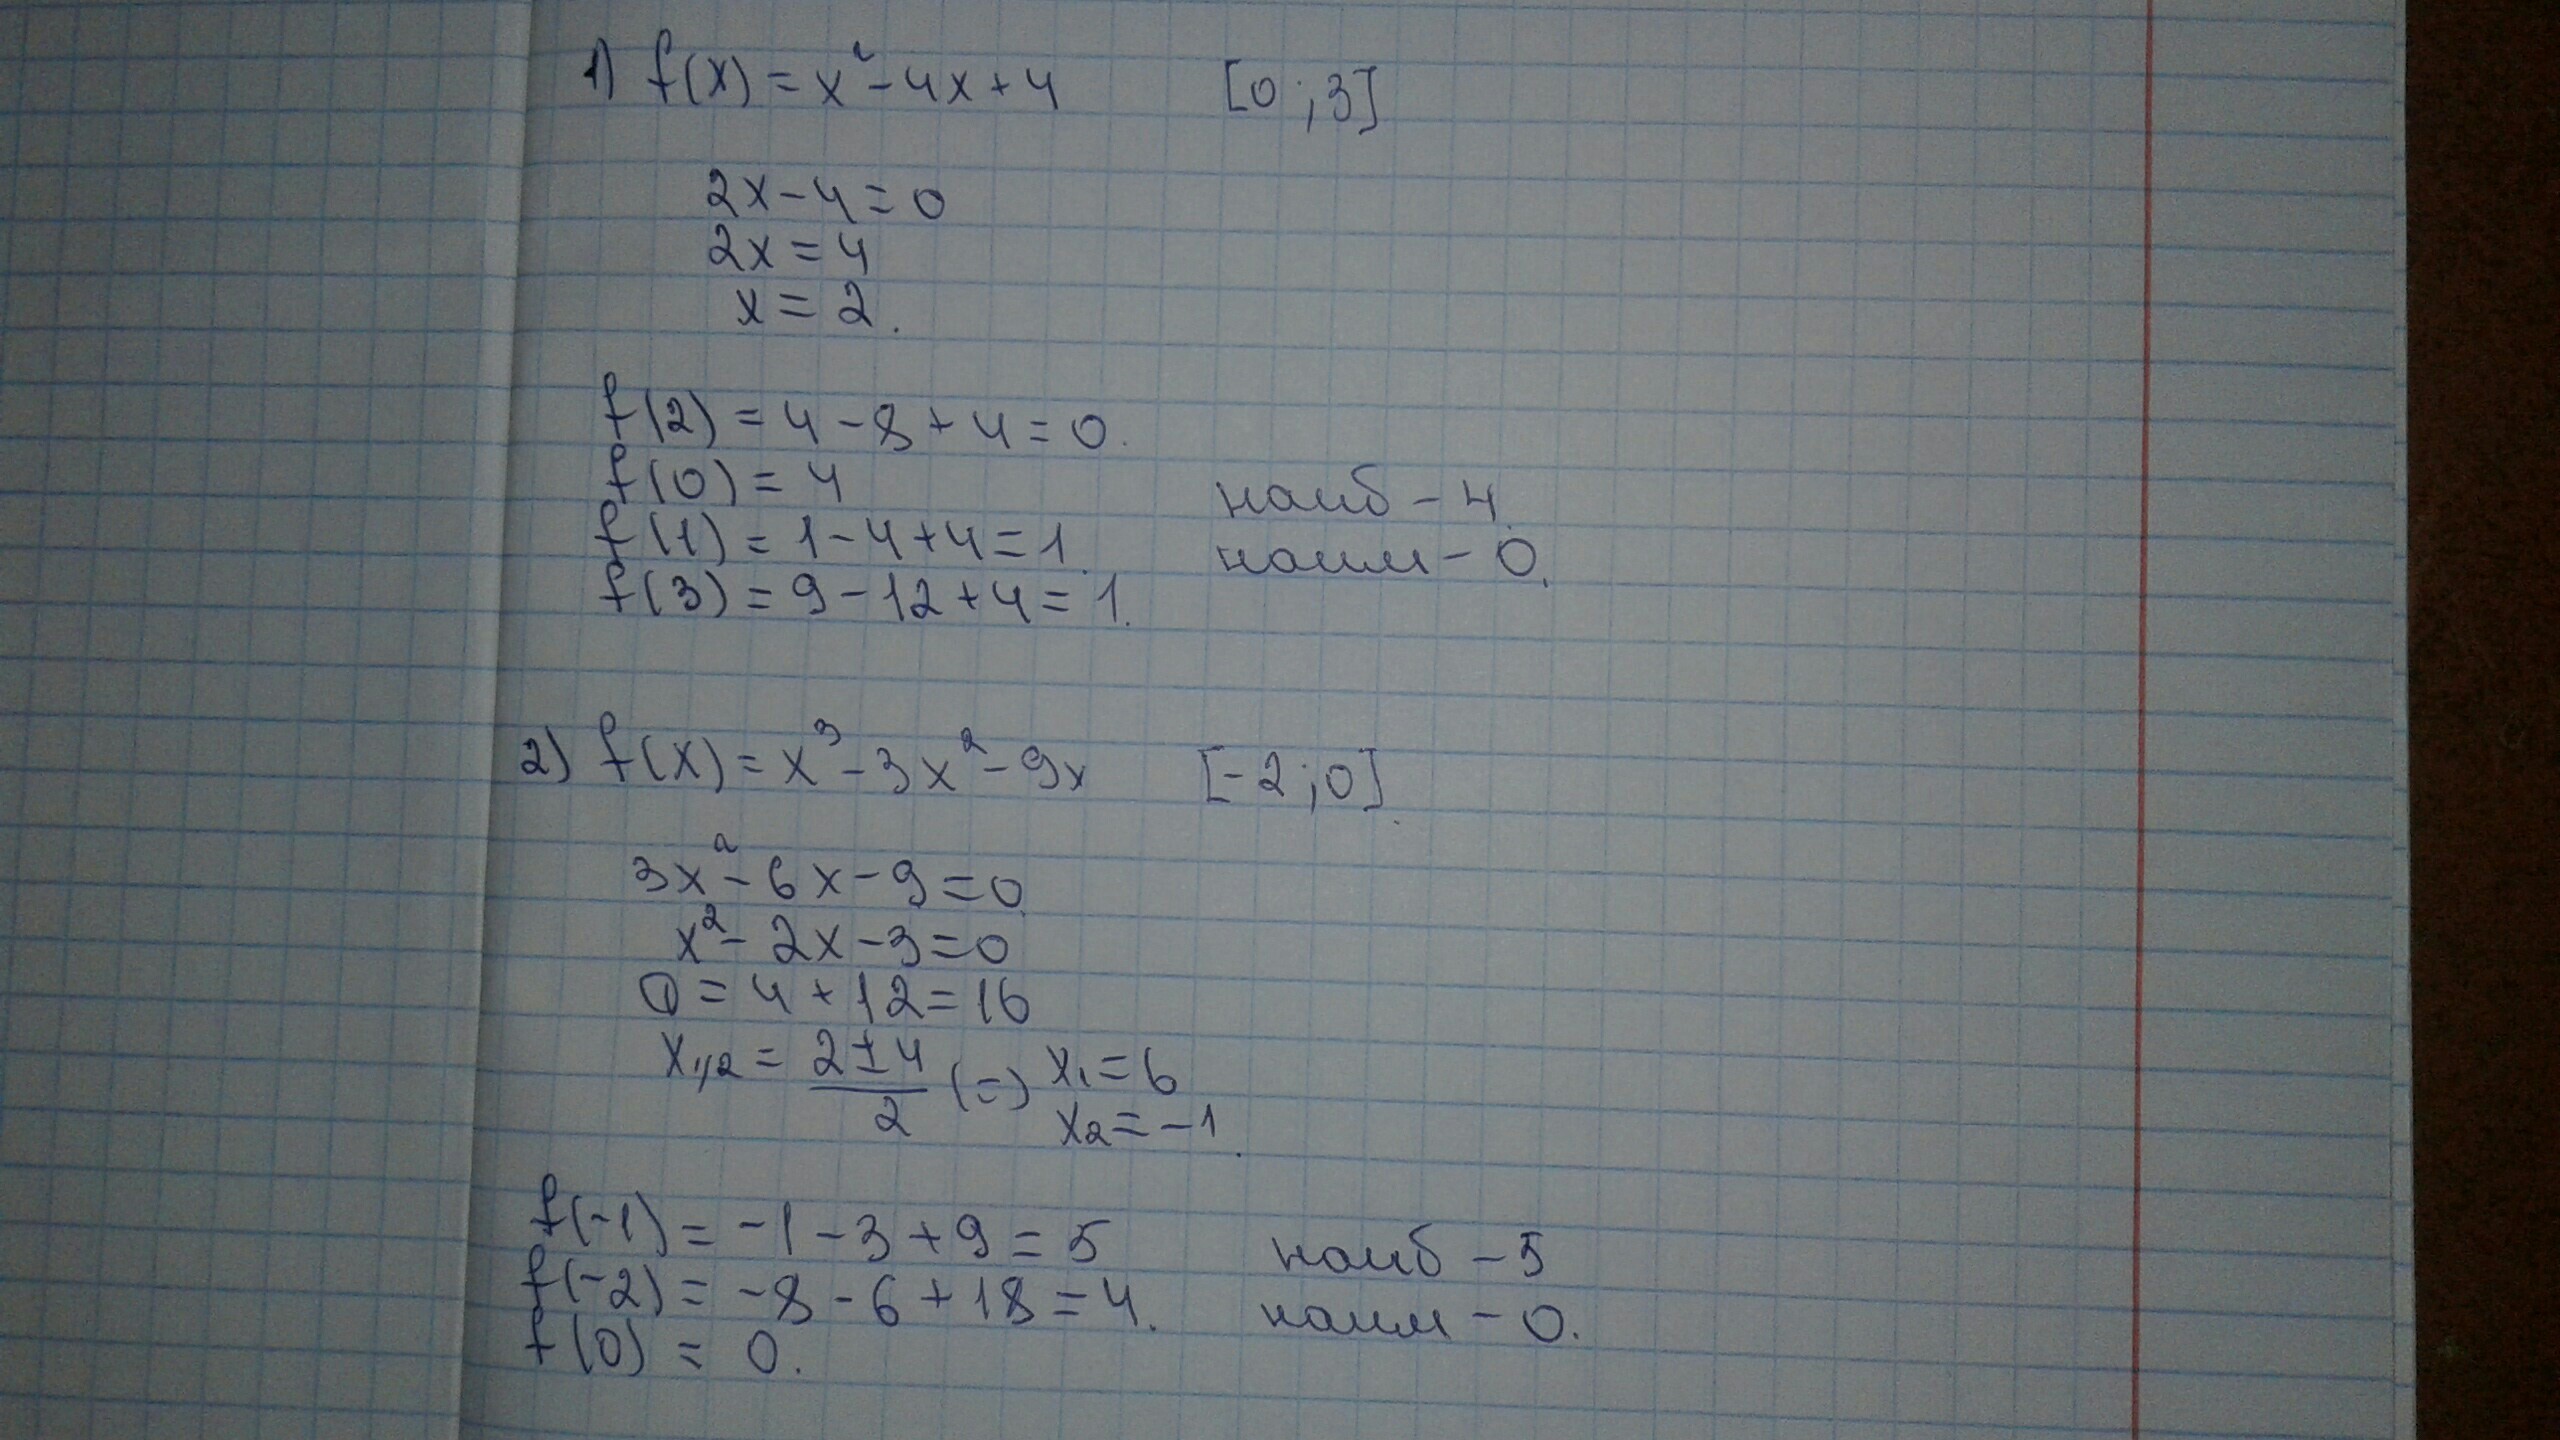 1) f(x) = x² - 4x + 4 [0 ; 3]
2x - 4 = 0
2x = 4
x = 2.
f(2) = 4 - 8 + 4 = 0.
f(0) = 4
наиб - 4.
f(1) = 1 - 4 + 4 = 1.
наим - 0.
f(3) = 9 - 12 + 4 = 1.
2) f(x) = x³ - 3x² - 9x [-2 ; 0].
3x² - 6x - 9 = 0.
x² - 2x - 3 = 0
D = 4 + 12 = 16
x₁,₂ = (2 ± 4)/2 (=) x₁ = 6
x₂ = -1.
f(-1) = -1 - 3 + 9 = 5 наиб - 5
f(-2) = -8 - 6 + 18 = 4. наим - 0.
f(0) = 0.